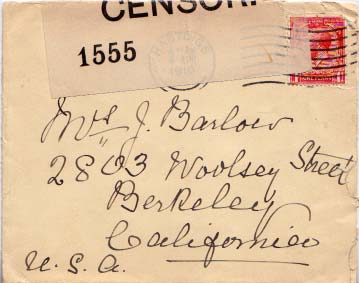 CENSOR
1555
Mrs J. Barlow
2803 Woolsey Street
Berkeley
California
U.S.A.